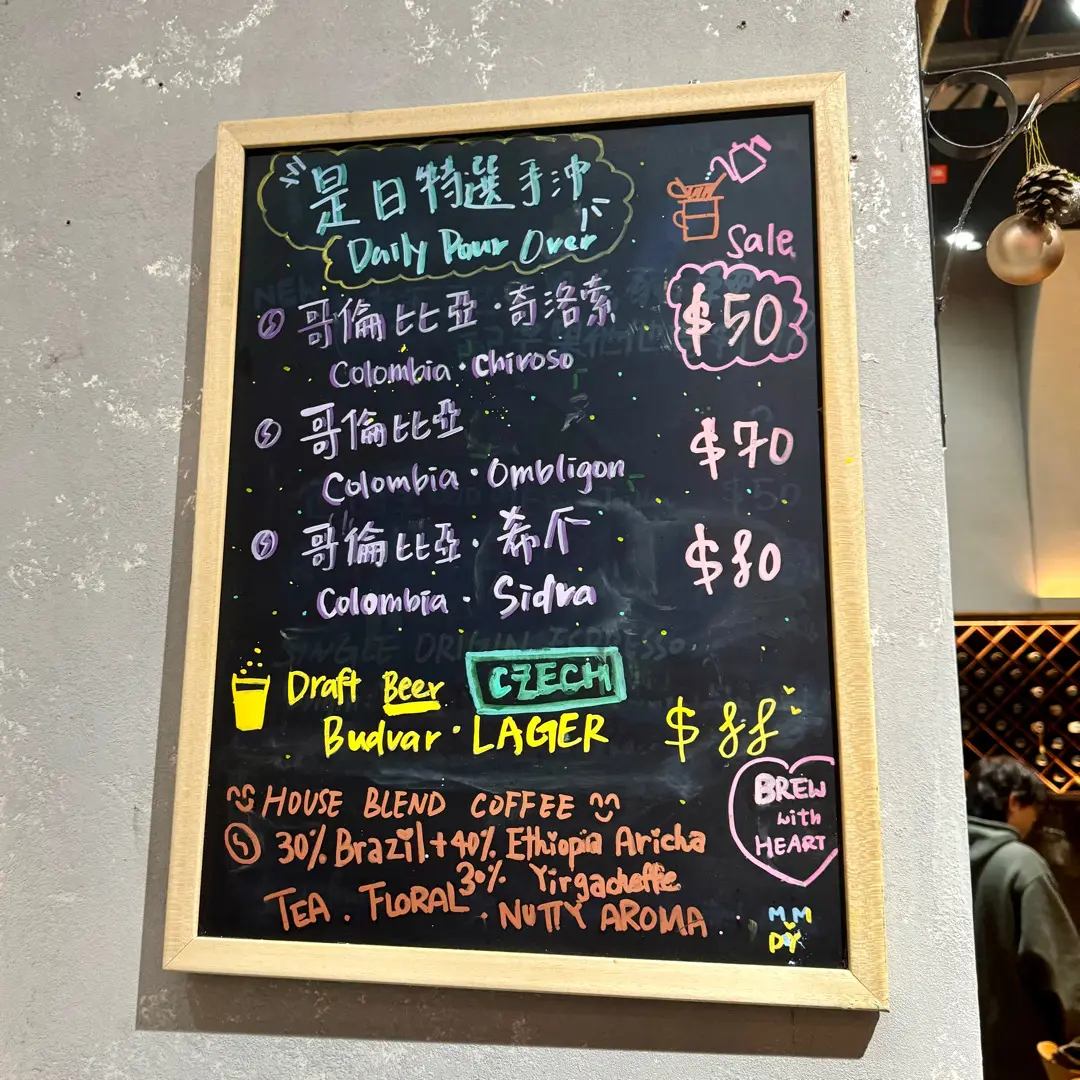 是日特選手沖
Daily Pour Over
Sale
哥倫比亞・奇洛索
$50
Colombia・Chiroso
哥倫比亞
$70
Colombia・Ombligon
哥倫比亞・希爪
$80
Colombia・Sidra
Draft Beer CZECH
Budvar・LAGER
$88
HOUSE BLEND COFFEE
30% Brazil + 40% Ethiopia Aricha
30% Yirgacheffe
TEA . FLORAL . NUTTY AROMA .
BREW
with
HEART
MM
DY